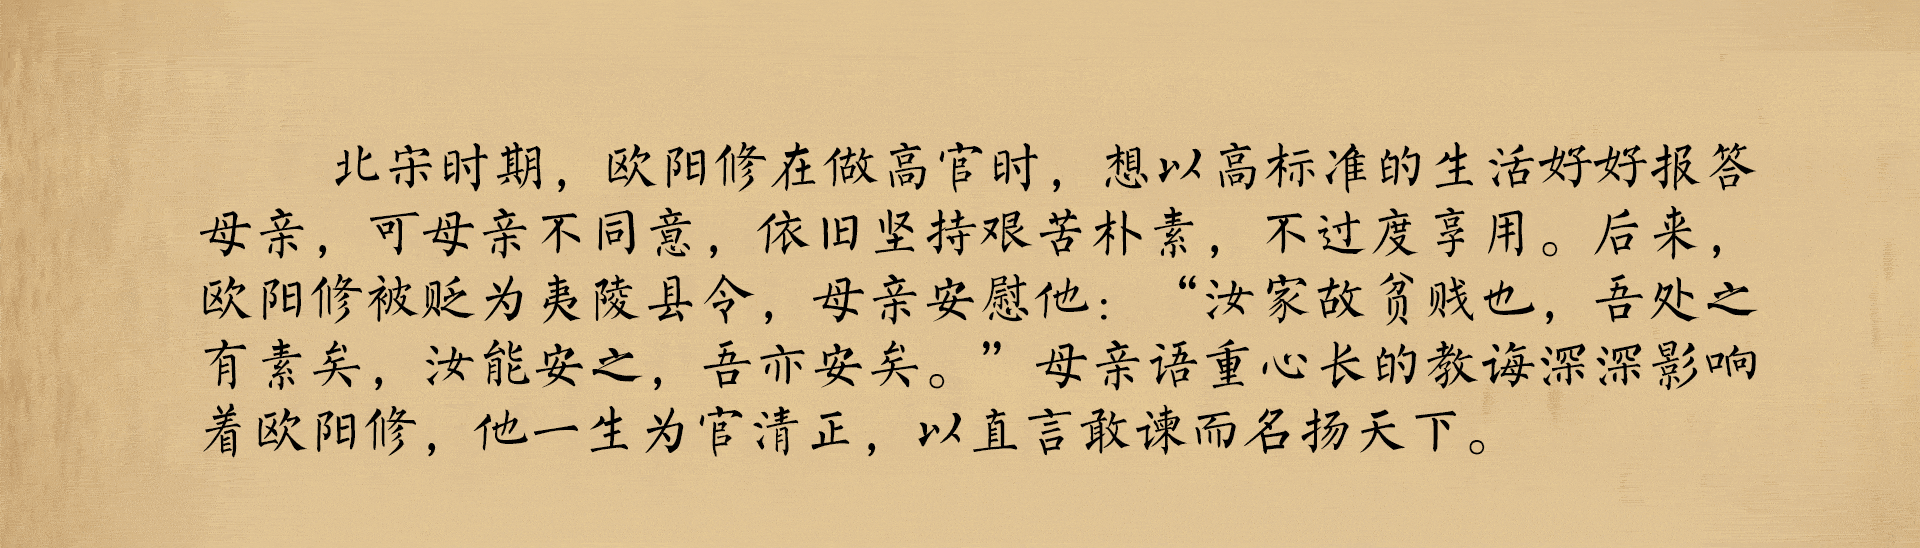 北宋时期，欧阳修在做高官时，想以高标准的生活好好报答
母亲，可母亲不同意，依旧坚持艰苦朴素，不过度享用。后来，
欧阳修被贬为夷陵县令，母亲安慰他：“汝家故贫贱也，吾处之
有素矣，汝能安之，吾亦安矣。”母亲语重心长的教诲深深影响
着欧阳修，他一生为官清正，以直言敢谏而名扬天下。